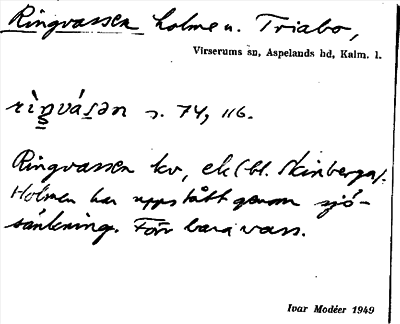 Ringvassen holme n. Triabo,
Virserums sn, Aspelands hd, Kalm. l.
s. 74, 116.
Ringvassen kv, ek (bl. Skinberga).
Holmen har uppstått genom sjö-
sänkning. Förr bara vass.
Ivar Modéer 1949